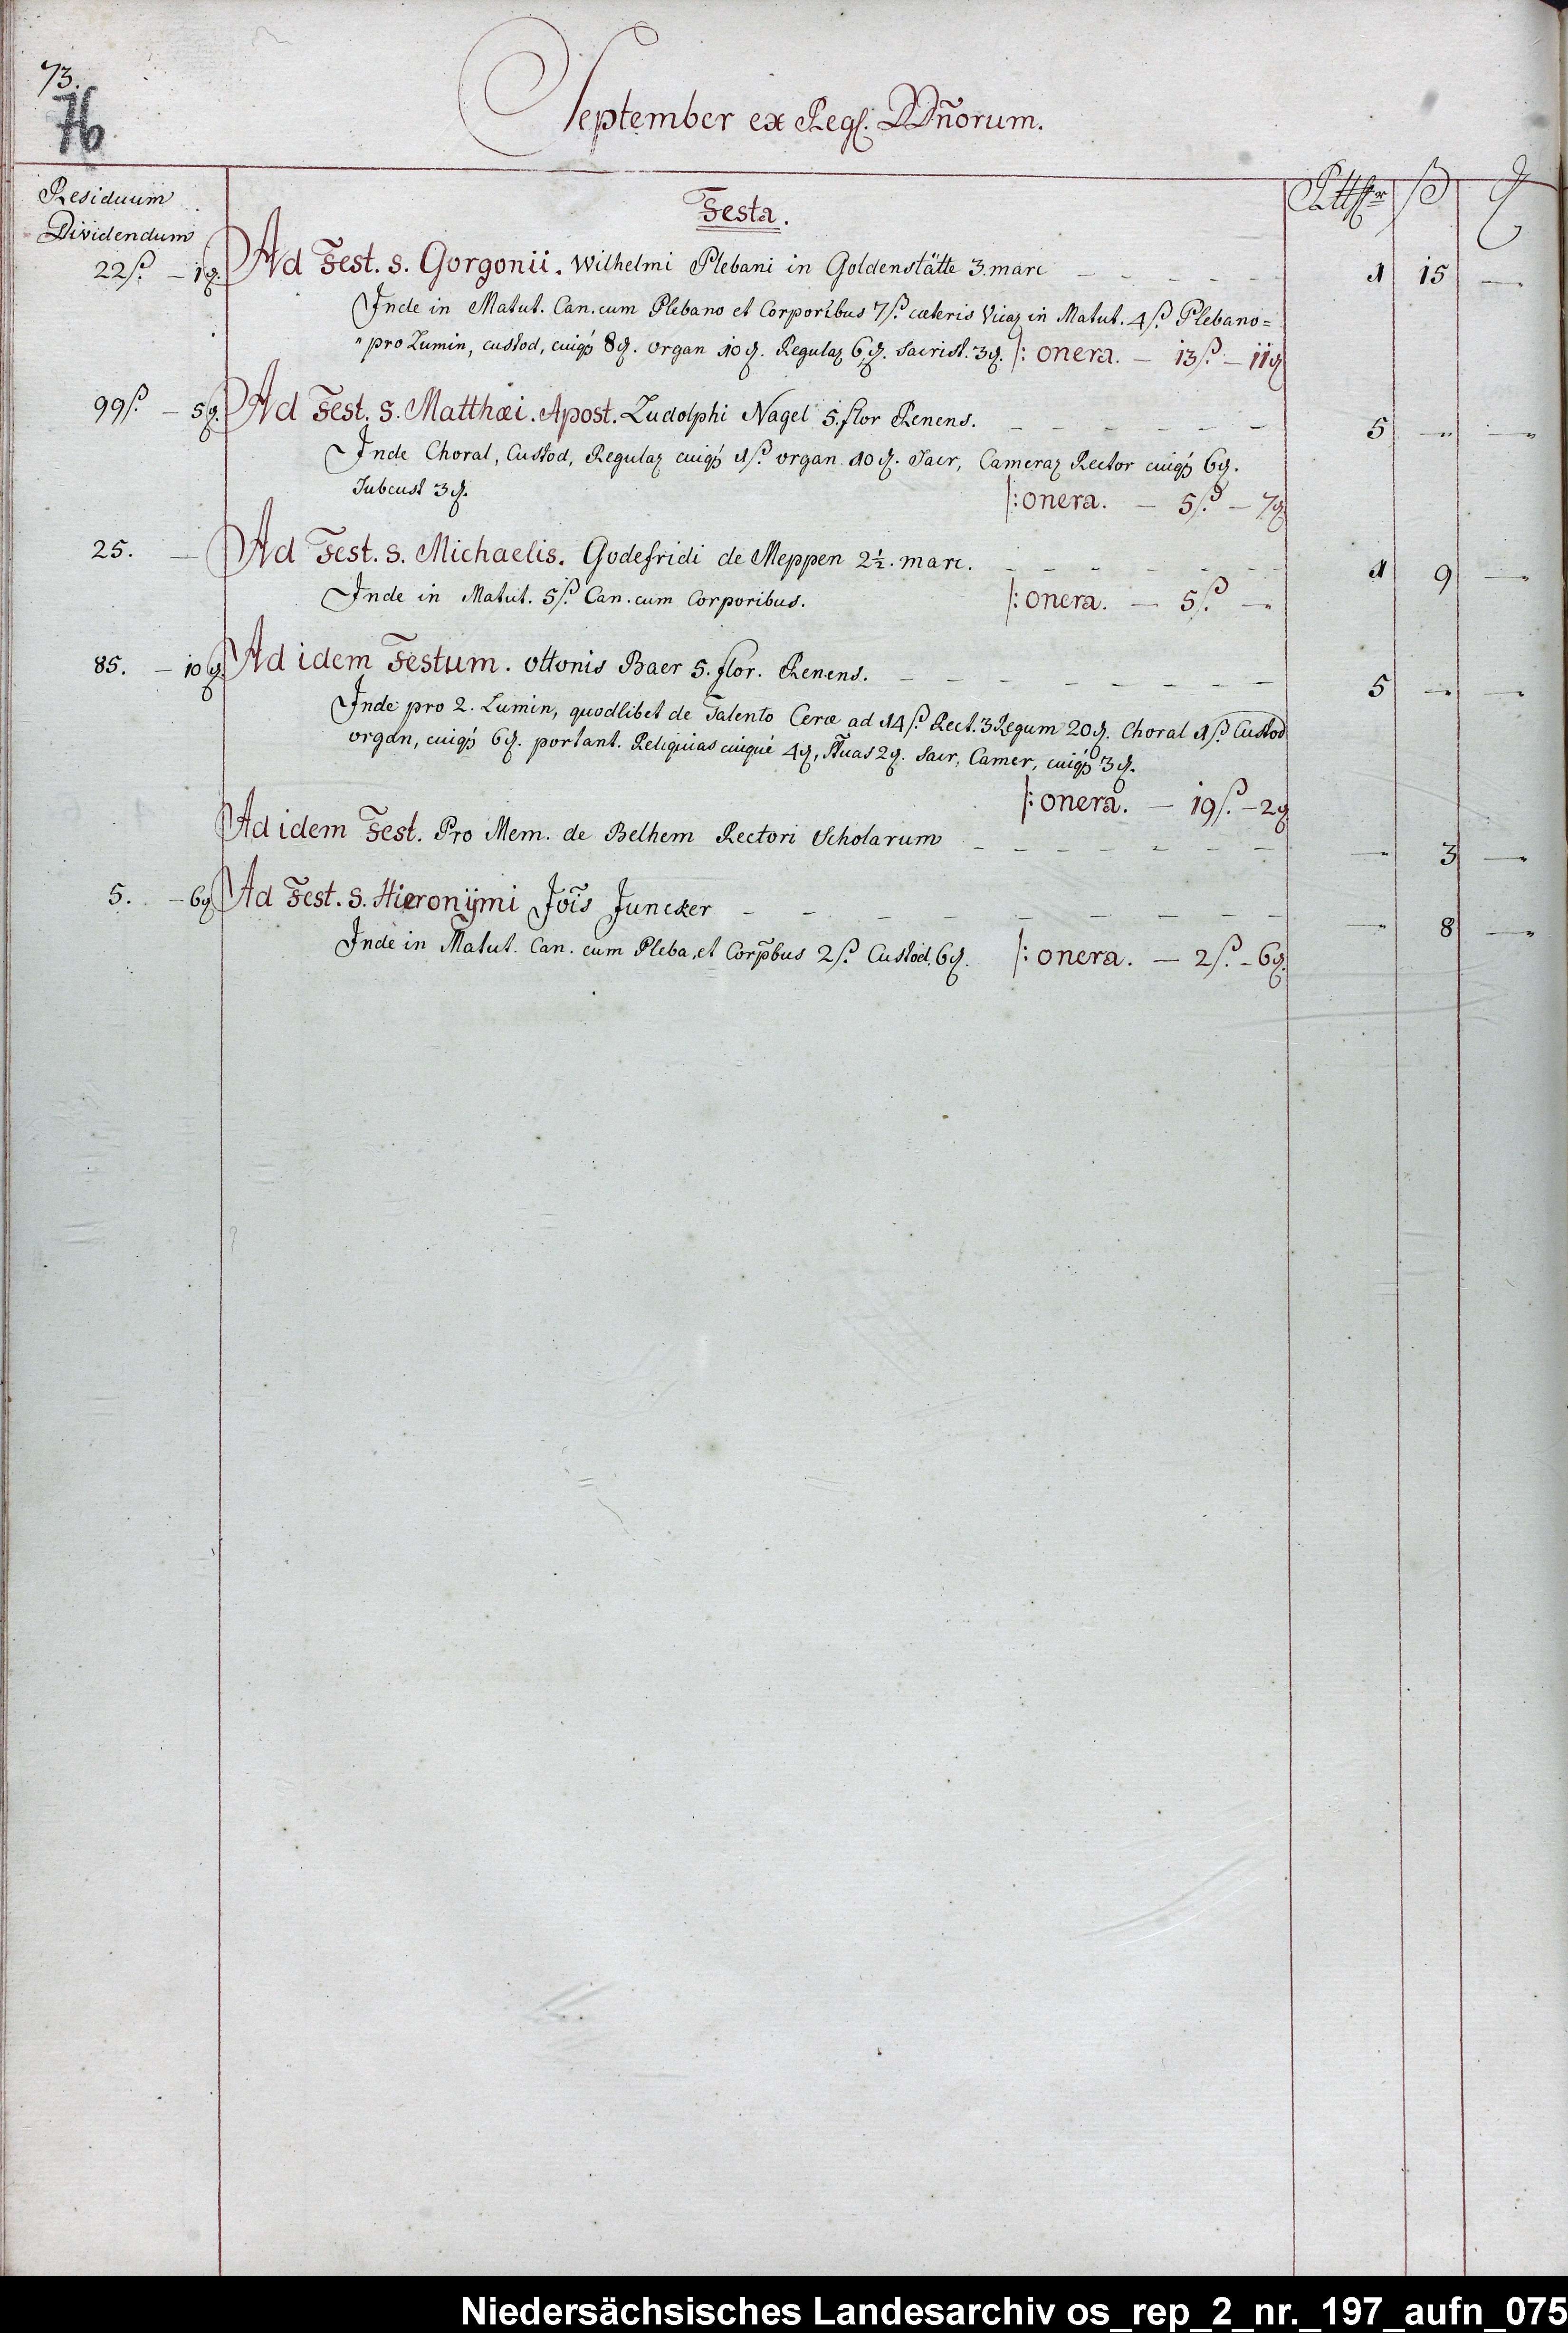 73.
76
September ex Regl. DDñorum.
Residuum
Dividendum
Festa.
Rttlr ß ₰
22ß. — 1₰. Ad Fest. S. Gorgonii. Wilhelmi Plebani in Goldenstätte 3. marc — 1 15 —
Inde in Matut. Can. cum Plebano et Corporibus 7ß. cæteris Vicar in Matut. 4ß. Plebano=
"pro Lumin, custod, cuiqꝫ 8₰. organ 10₰. Regular 6₰. Sacrist. 3₰. /: onera. — 13ß. — 11₰
99ß. — 5₰. Ad Fest. S. Matthæi. Apost. Ludolphi Nagel 5. flor Renens. — 5 — —
Inde Choral, Custod, Regular cuiqꝫ 1ß. organ. 10₰. Sacr, Camerar Rector cuiqꝫ 6₰.
Subcust 3₰. /: onera. — 5ß. — 7₰
25. — Ad Fest. S. Michaelis. Godefridi de Meppen 2½. marc. — 1 9 —
Inde in Matut. 5ß. Can. cum Corporibus. /: onera. — 5ß. —
85. — 10₰. Ad idem Festum. Ottonis Baer 5. flor. Renens. — 5 — —
Inde pro 2. Lumin, quodlibet de Talento Ceræ ad 14ß. Rect. 3 Regum 20₰. Choral 1ß. Custod
organ, cuiqꝫ 6₰. portant. Reliquias cuique 4₰, 2₰. Sacr, Camer, cuiqꝫ 3₰.
/: onera. — 19ß. — 2₰
Ad idem Fest. Pro Mem. de Belhem Rectori Scholarum — — 3 —
5. — 6₰ Ad Fest. S. Hieronÿmi Jõis Juncker — — 8 —
Inde in Matut. Can. cum Pleba, et Corp̃bus 2ß. Custod. 6₰. /: onera. — 2ß. — 6₰.
Niedersächsisches Landesarchiv os_rep_2_nr._197_aufn_075